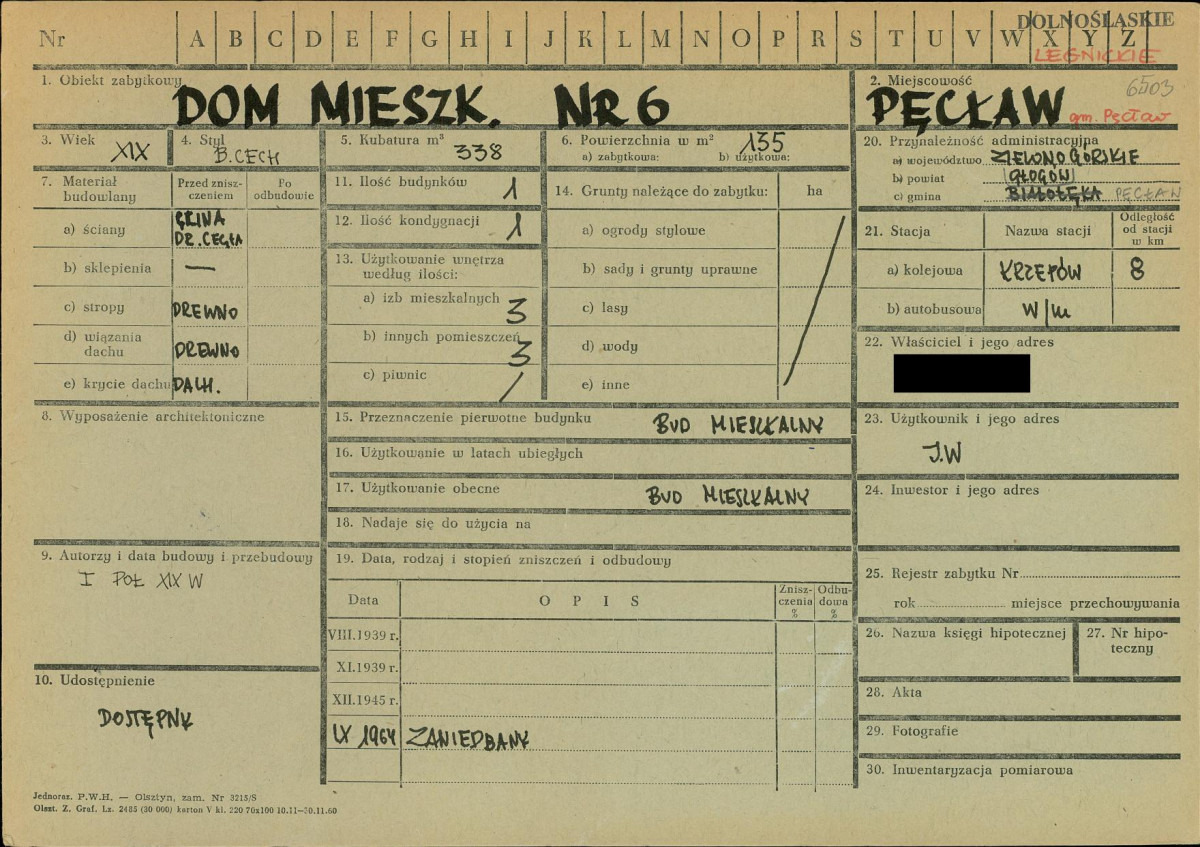 Nr A B C D E F G H I J K L M N O P R S T U V W X Y Z
DOLNOŚLĄSKIE
LEGNICKIE
1. Obiekt zabytkowy
DOM MIESZK. NR 6
2. Miejscowość
6503
PĘCŁAW gm. Pęcław
3. Wiek
XIX
4. Styl
B. CECH
5. Kubatura m³
338
6. Powierzchnia w m²
135
a) zabytkowa: b) użytkowa:
20. Przynależność administracyjna
a) województwo ZIELONOGÓRSKIE
b) powiat GŁOGÓW
c) gmina BIAŁOŁĘKA PĘCŁAW
7. Materiał budowlany
Przed zniszczeniem
Po odbudowie
a) ściany GLINA DR. CEGŁA
b) sklepienia —
c) stropy DREWNO
d) wiązania dachu DREWNO
e) krycie dachu DACH.
11. Ilość budynków 1
12. Ilość kondygnacji 1
13. Użytkowanie wnętrza
według ilości:
a) izb mieszkalnych 3
b) innych pomieszczeń 3
c) piwnic /
14. Grunty należące do zabytku: ha
a) ogrody stylowe
b) sady i grunty uprawne
c) lasy
d) wody
e) inne
21. Stacja
Nazwa stacji
Odległość od stacji w km
a) kolejowa KRZEPÓW 8
b) autobusowa w/m
22. Właściciel i jego adres
8. Wyposażenie architektoniczne
15. Przeznaczenie pierwotne budynku BUD MIESZKALNY
16. Użytkowanie w latach ubiegłych
17. Użytkowanie obecne BUD MIESZKALNY
18. Nadaje się do użycia na
23. Użytkownik i jego adres
J.W
24. Inwestor i jego adres
9. Autorzy i data budowy i przebudowy
I POŁ XIX W
19. Data, rodzaj i stopień zniszczeń i odbudowy
Data OPIS Zniszczenia % Odbudowa %
VIII.1939 r.
XI.1939 r.
XII.1945 r.
IX 1964 ZANIEDBANY
25. Rejestr zabytku Nr
rok miejsce przechowywania
26. Nazwa księgi hipotecznej
27. Nr hipoteczny
28. Akta
29. Fotografie
30. Inwentaryzacja pomiarowa
10. Udostępnienie
DOSTĘPNY
Jednoraz. P.W.H. — Olsztyn, zam. Nr 3215/S
Olszt. Z. Graf. Lz. 2485 (30 000) karton V kl. 220 70x100 10.11—30.11.60